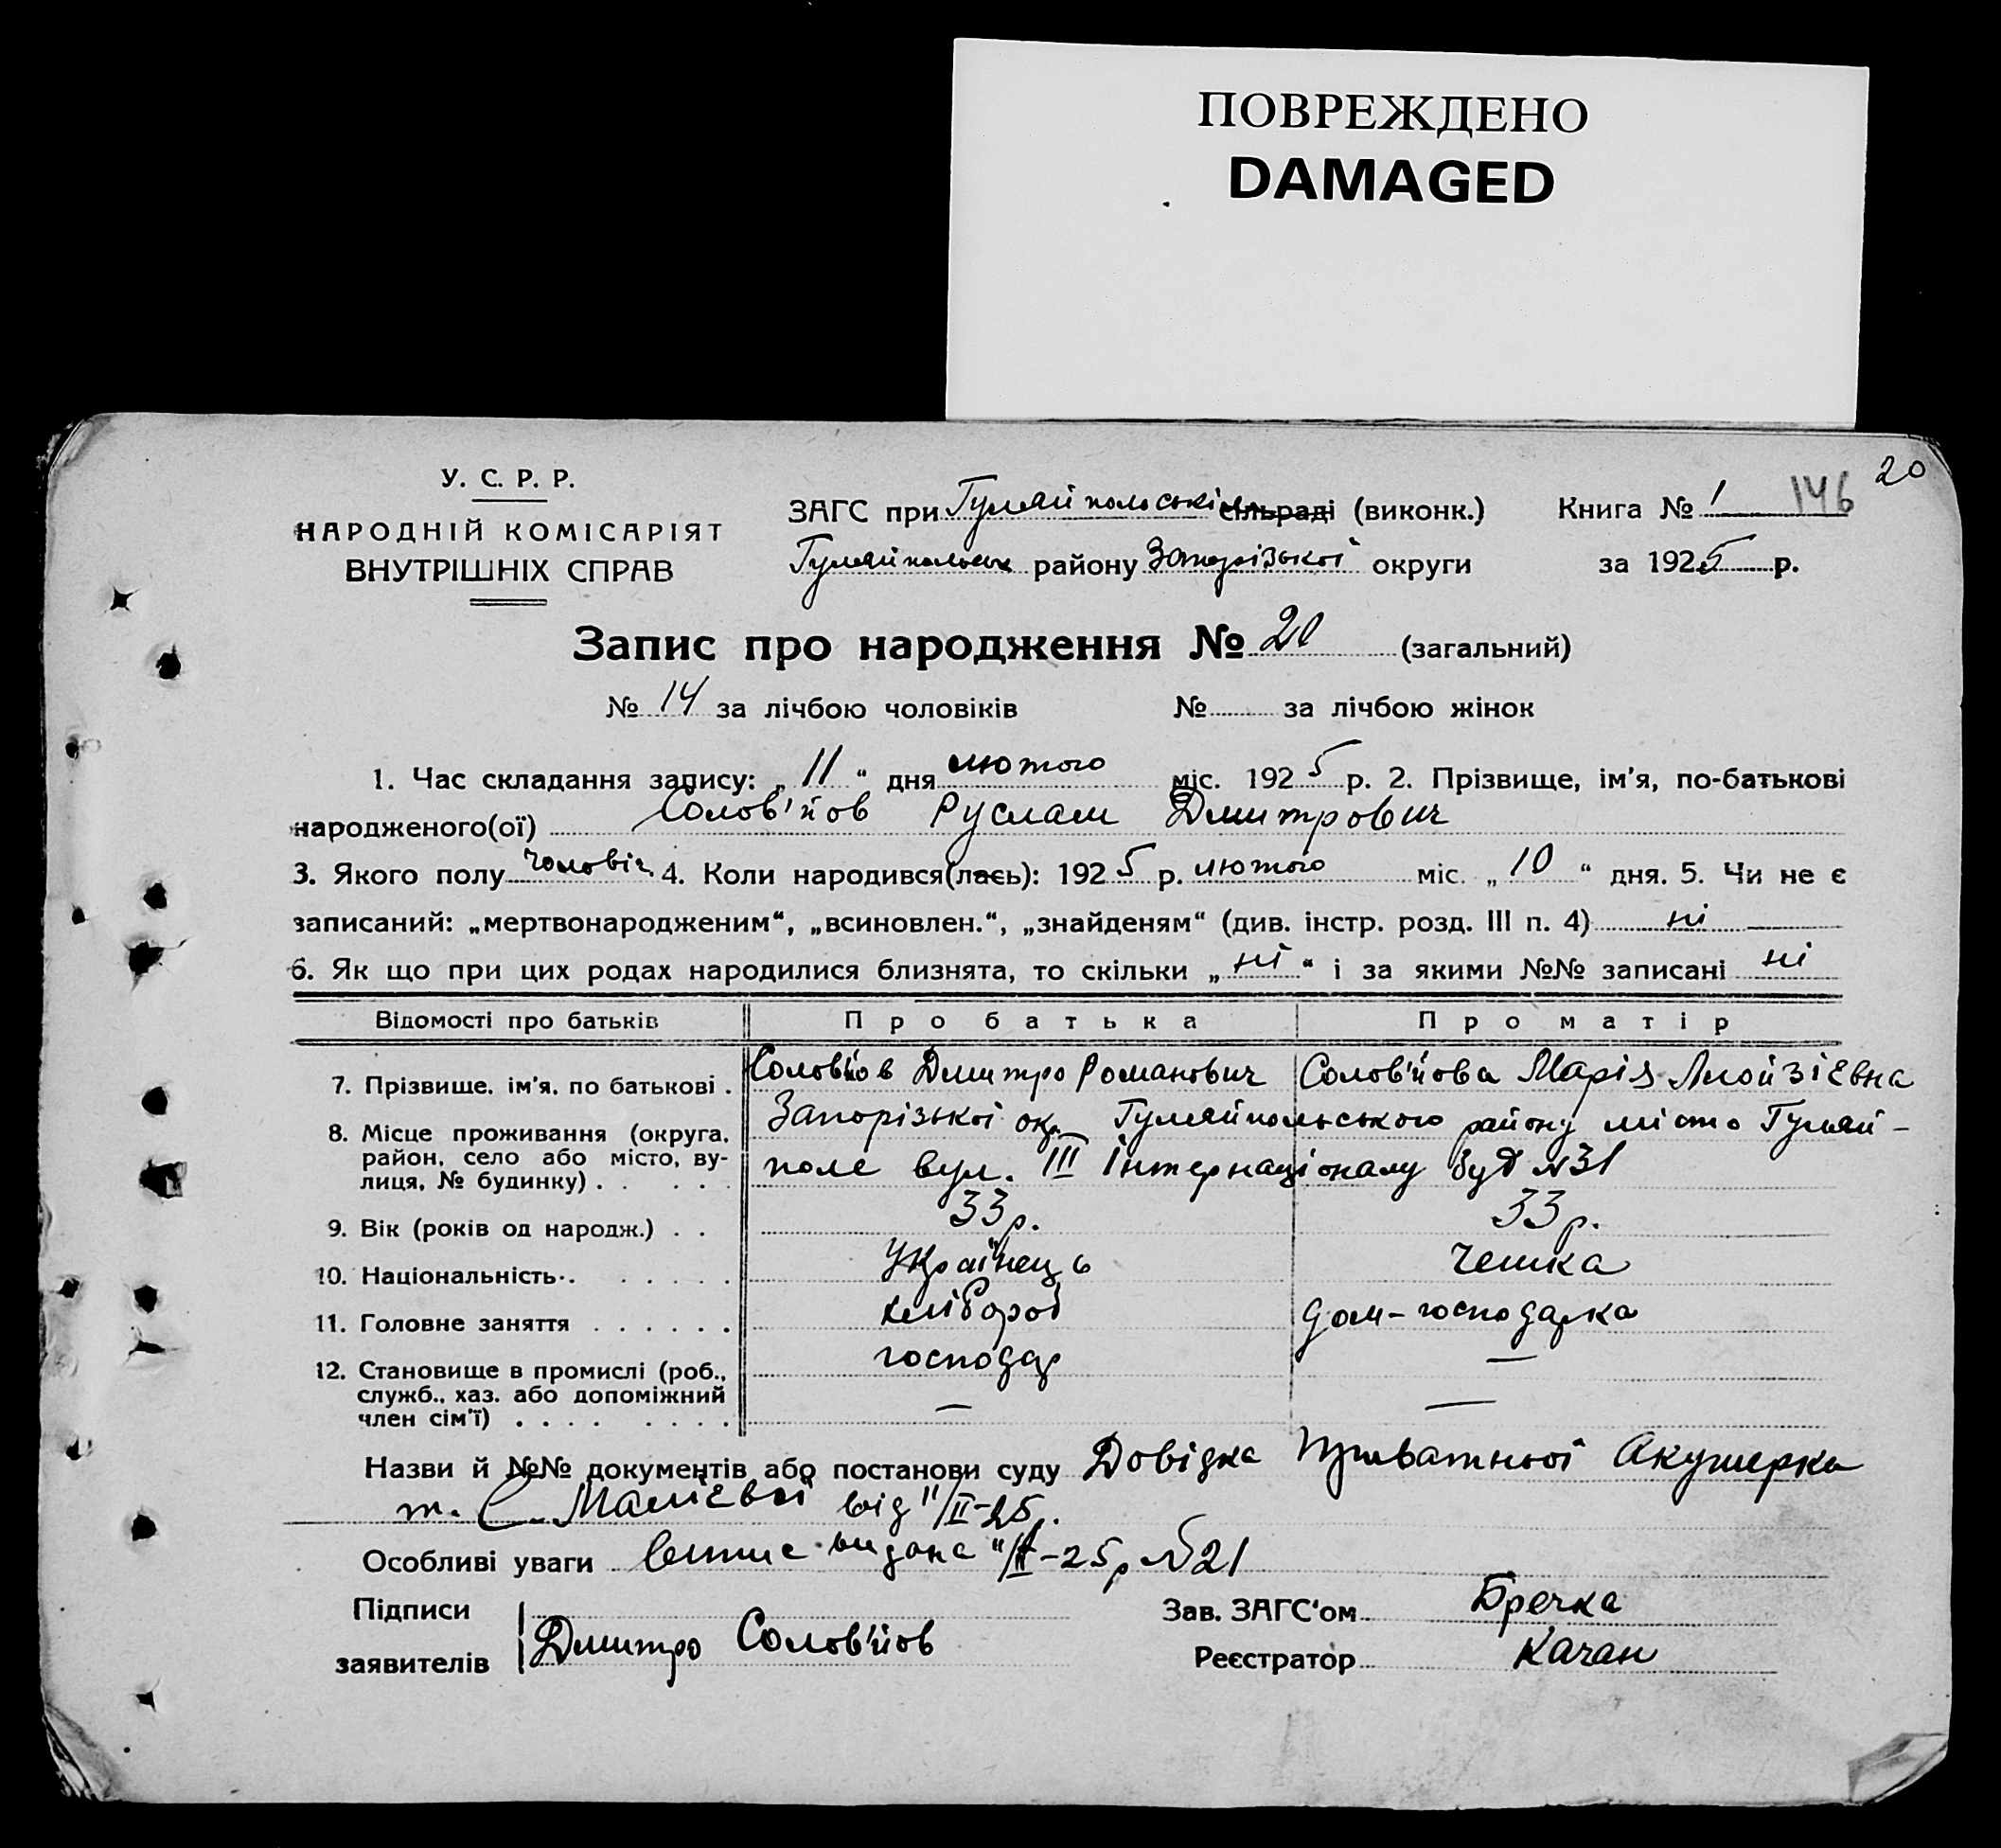 ПОВРЕЖДЕНО
DAMAGED
20
У. С. Р. Р.
НАРОДНІЙ КОМІСАРІЯТ
ВНУТРІШНІХ СПРАВ
ЗАГС при Гуляйпольські сільраді (виконк.) Книга № 1 146
Гуляйпольськ району Запорізької округи за 1925 р.
Запис про народження № 20 (загальний)
№ 14 за лічбою чоловіків № за лічбою жінок
1. Час складання запису: „ 11 “ дня лютого міс. 1925 р. 2. Прізвище, ім'я, по-батькові
народженого(ої) Солов'йов Руслан Дмитрович
3. Якого полу чоловіч. 4. Коли народився(лась): 1925 р. лютого міс. „ 10 “ дня. 5. Чи не є
записаний: „мертвонародженим“, „всиновлен.“, „знайденям“ (див. інстр. розд. III п. 4) ні
6. Як що при цих родах народилися близнята, то скільки „ ні “ і за якими №№ записані ні
Відомості про батьків Про батька Про матір
7. Прізвище. ім'я. по батькові . Солов'йов Дмитро Романович Солов'йова Марія Алойзієвна
8. Місце проживання (округа. Запорізької окр. Гуляйпольського району місто Гуляй-
район, село або місто, ву-
лиця, № будинку) . . . . . поле вул. III Інтернаціоналу буд №31
9. Вік (років од народж.) . . 33 р. 33 р.
10. Національність . . . . . . Українець Чешка
11. Головне заняття . . . . . . хлібороб дом-господарка
12. Становище в промислі (роб., господар —
служб., хаз. або допоміжний
член сім'ї) . . . . . . . . — —
Назви й №№ документів або постанови суду Довідка Приватної Акушерки
т. С. від 11/II-25 р.
Особливі уваги видана 11/II-25 р №21
Підписи Зав. ЗАГС'ом Бречка
заявителів Дмитро Солов'йов Реєстратор Качан